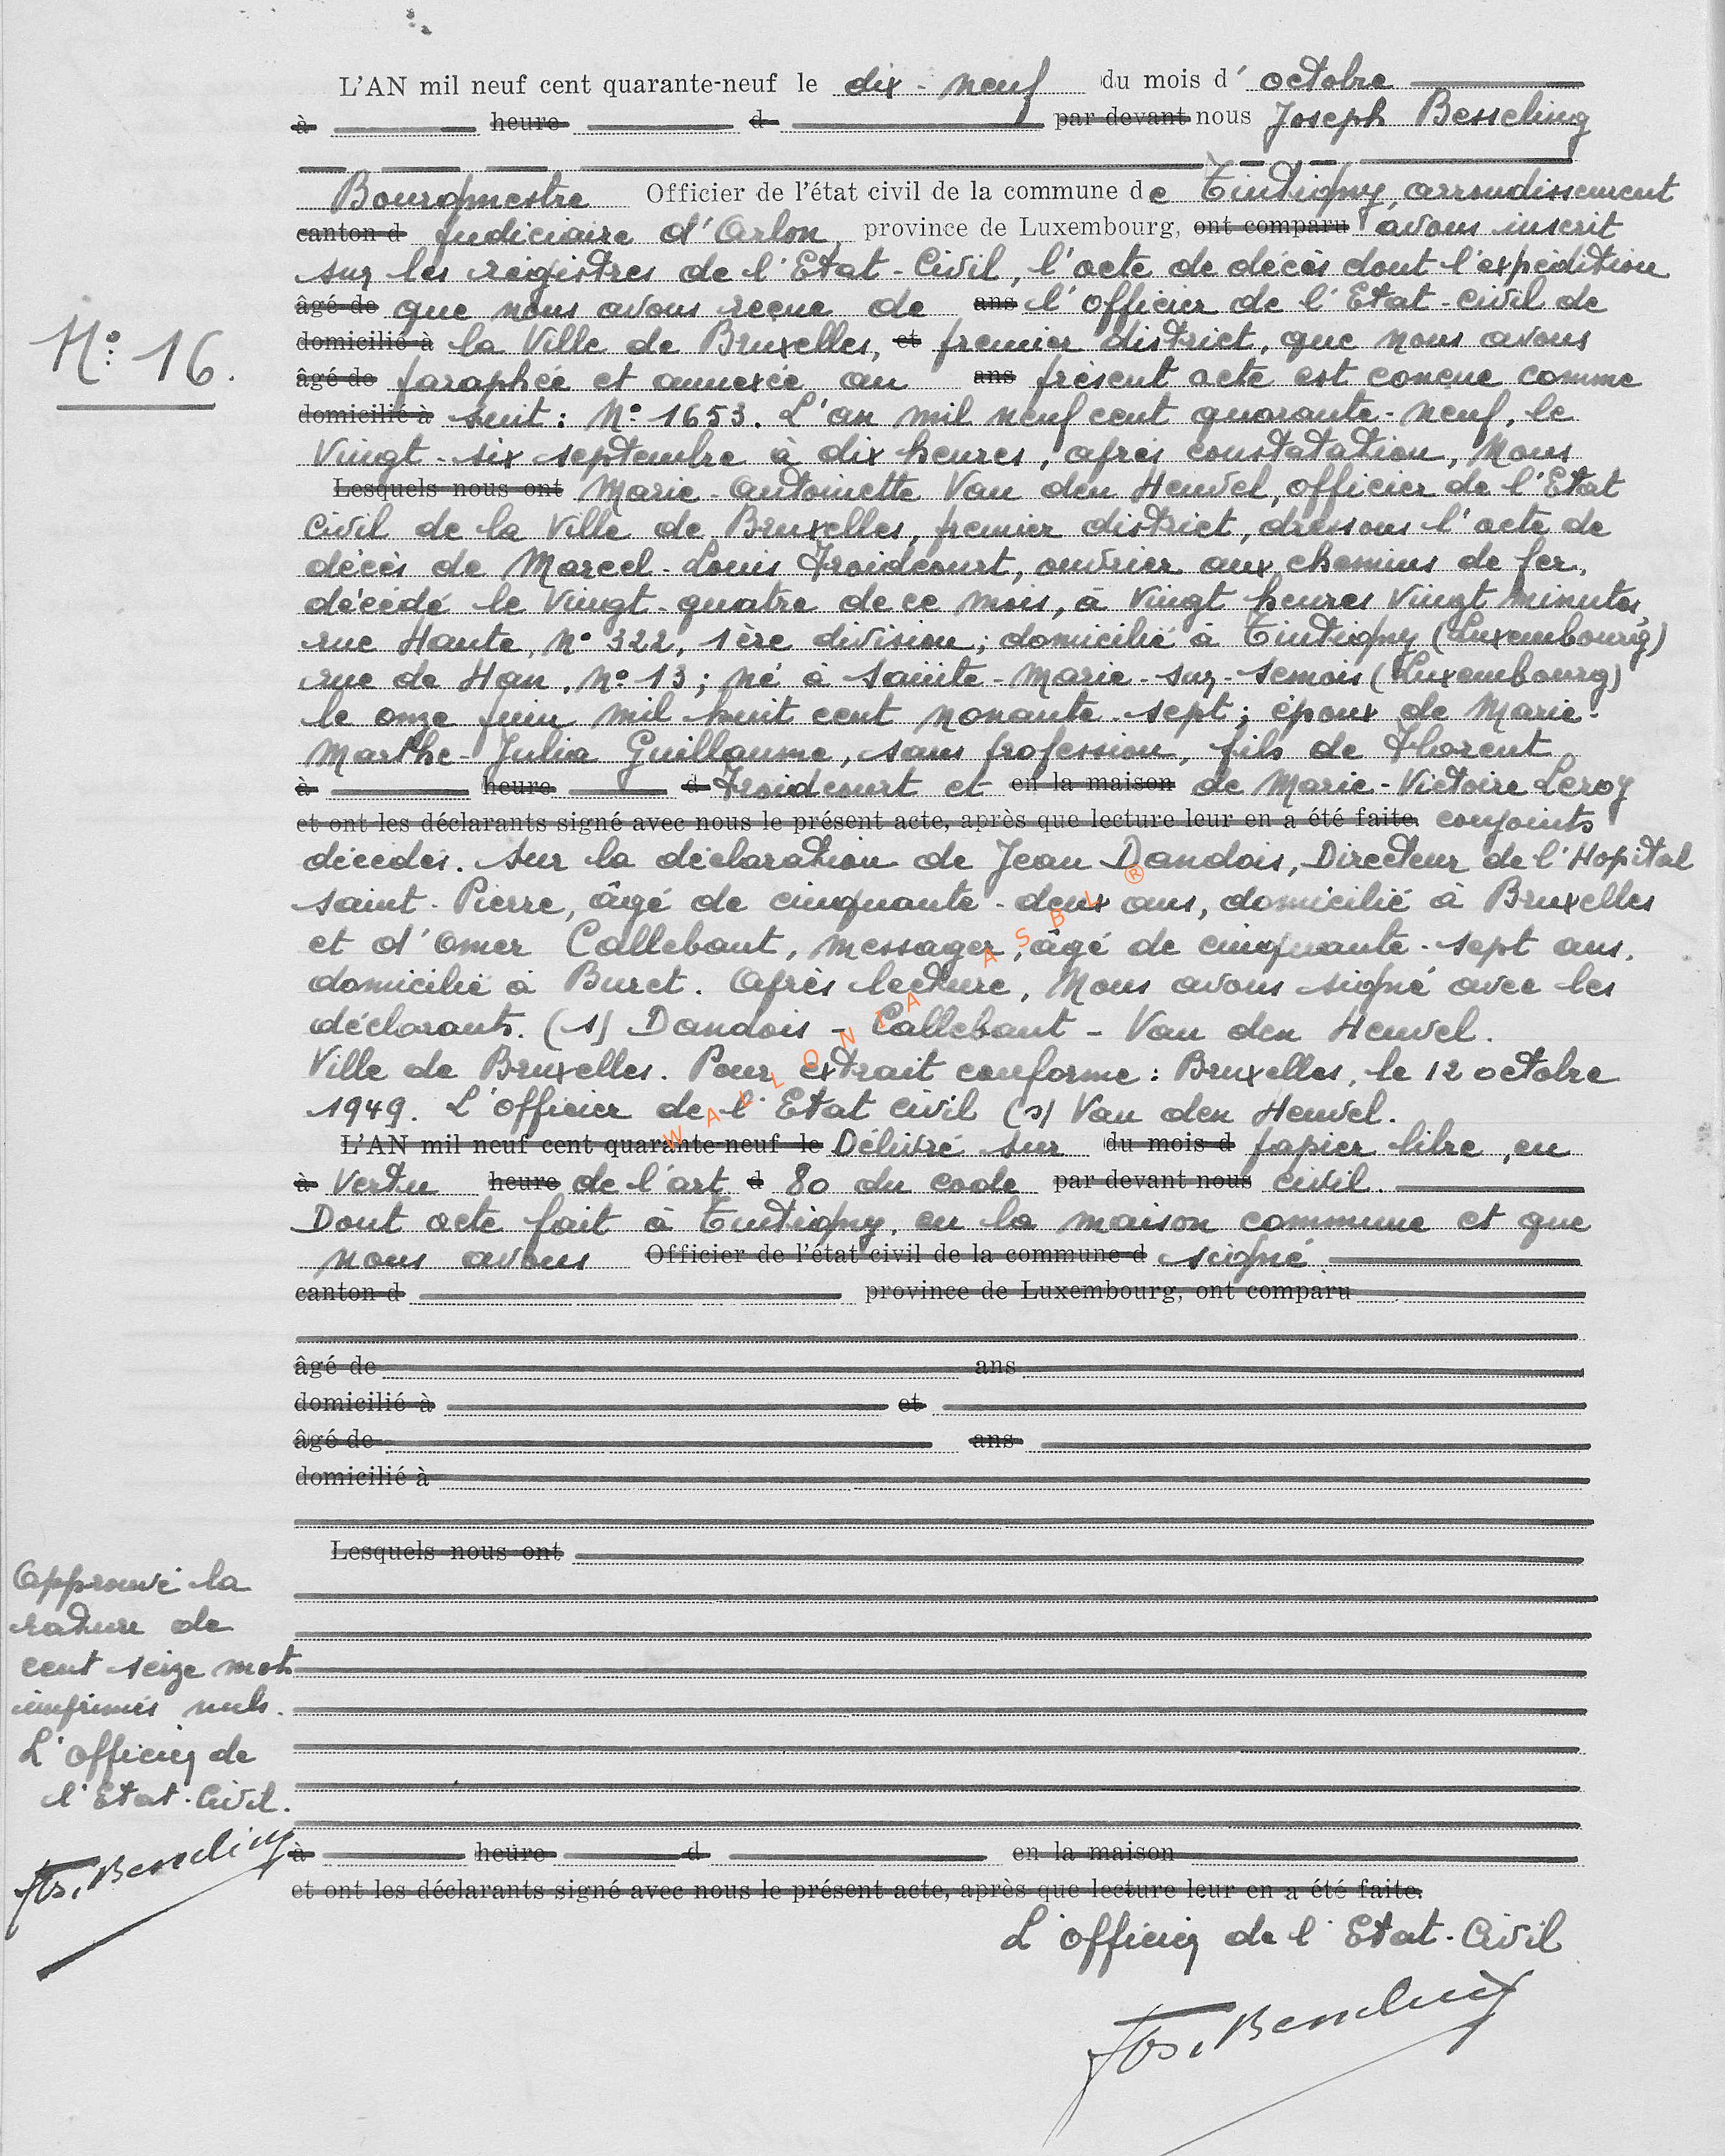 L'AN mil neuf cent quarante-neuf le dix-neuf du mois d' octobre
à heure d par devant nous Joseph Besseling
Bourgmestre Officier de l'état civil de la commune de Tintigny, arrondissement
canton d judiciaire d'Arlon, province de Luxembourg, ont comparu avons inscrit
sur les régistres de l'Etat-Civil, l'acte de décès dont l'expédition
âgé de que nous avons reçue de ans l'officier de l'Etat-civil de
domicilié à la Ville de Bruxelles, et premier district, que nous avons
N° 16.
âgé de paraphée et annexée au ans présent acte est conçue comme
domicilié à suit : N° 1653. L'an mil neuf cent quarante-neuf, le
Vingt-six septembre à dix heures, après constatation, Nous
Lesquels nous ont Marie-Antoinette Van den Heuvel, officier de l'Etat
Civil de la Ville de Bruxelles, premier district, dressons l'acte de
décès de Marcel-Louis Froidcourt, ouvrier aux chemins de fer,
décédé le Vingt-quatre de ce mois, à Vingt heures Vingt minutes,
rue Haute, N° 322, 1ère division; domicilié à Tintigny (Luxembourg)
rue de Han, N° 13; né à Sainte-Marie-sur-Semois (Luxembourg)
le onze Juin mil huit cent nonante-sept; époux de Marie-
Marthe-Julia Guillaume, sans profession, fils de Florent
à heure d Froidcourt et en la maison de Marie-Victoire Leroy
et ont les déclarants signé avec nous le présent acte, après que lecture leur en a été faite. conjoints
décédés. Sur la déclaration de Jean Dandois, Directeur de l'Hopital
Saint-Pierre, âgé de cinquante-deux ans, domicilié à Bruxelles
et d'Omer Callebaut, messager, âgé de cinquante-sept ans,
domicilié à Buret. Après lecture, Nous avons signé avec les
déclarants. (s) Dandois - Callebaut - Van den Heuvel.
Ville de Bruxelles. Pour extrait conforme : Bruxelles, le 12 octobre
1949. L'officier de l'Etat civil (s) Van den Heuvel.
WALLONIA ASBL ®
L'AN mil neuf cent quarante-neuf le Délivré sur du mois d papier libre, en
à Vertu heure de l'art d 80 du code par devant nous civil.
Dont acte fait à Tintigny, en la maison commune et que
nous avons Officier de l'état civil de la commune d signé
canton d province de Luxembourg, ont comparu
âgé de ans
domicilié à et
âgé de ans
domicilié à
Lesquels nous ont
Approuvé la
rature de
cent seize mots
imprimés nuls.
L'Officier de
l'Etat-Civil.
Jos. Besseling
à heure d en la maison
et ont les déclarants signé avec nous le présent acte, après que lecture leur en a été faite.
L'officier de l'Etat-Civil
Jos. Besseling